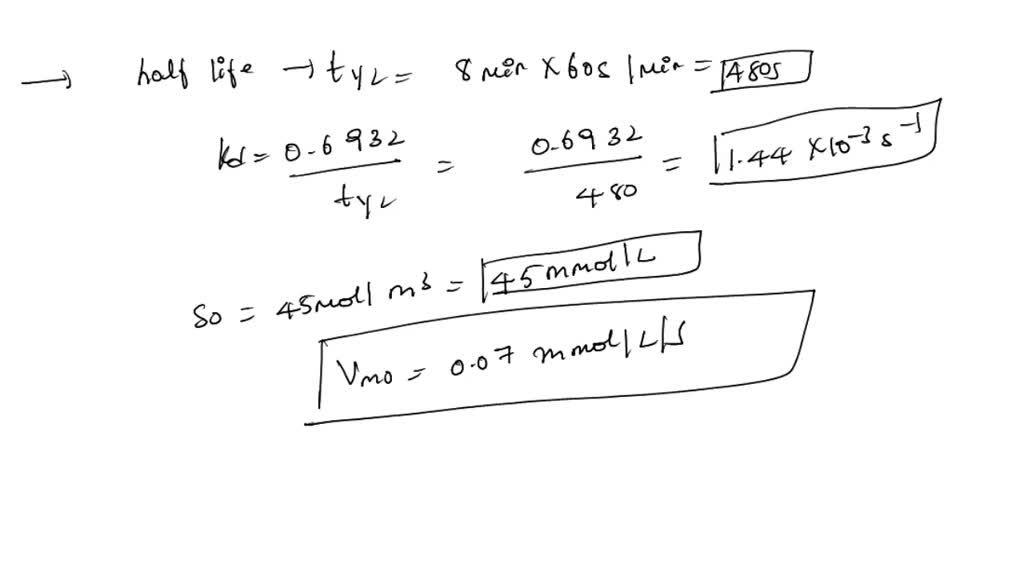 → half life → t½ = 8 min × 60s / min = 480s
kd = 0.6932 / t½ = 0.6932 / 480 = 1.44 × 10⁻³ s⁻¹
So = 45 mol / m³ = 45 mmol / L
Vmo = 0.07 mmol / L / s